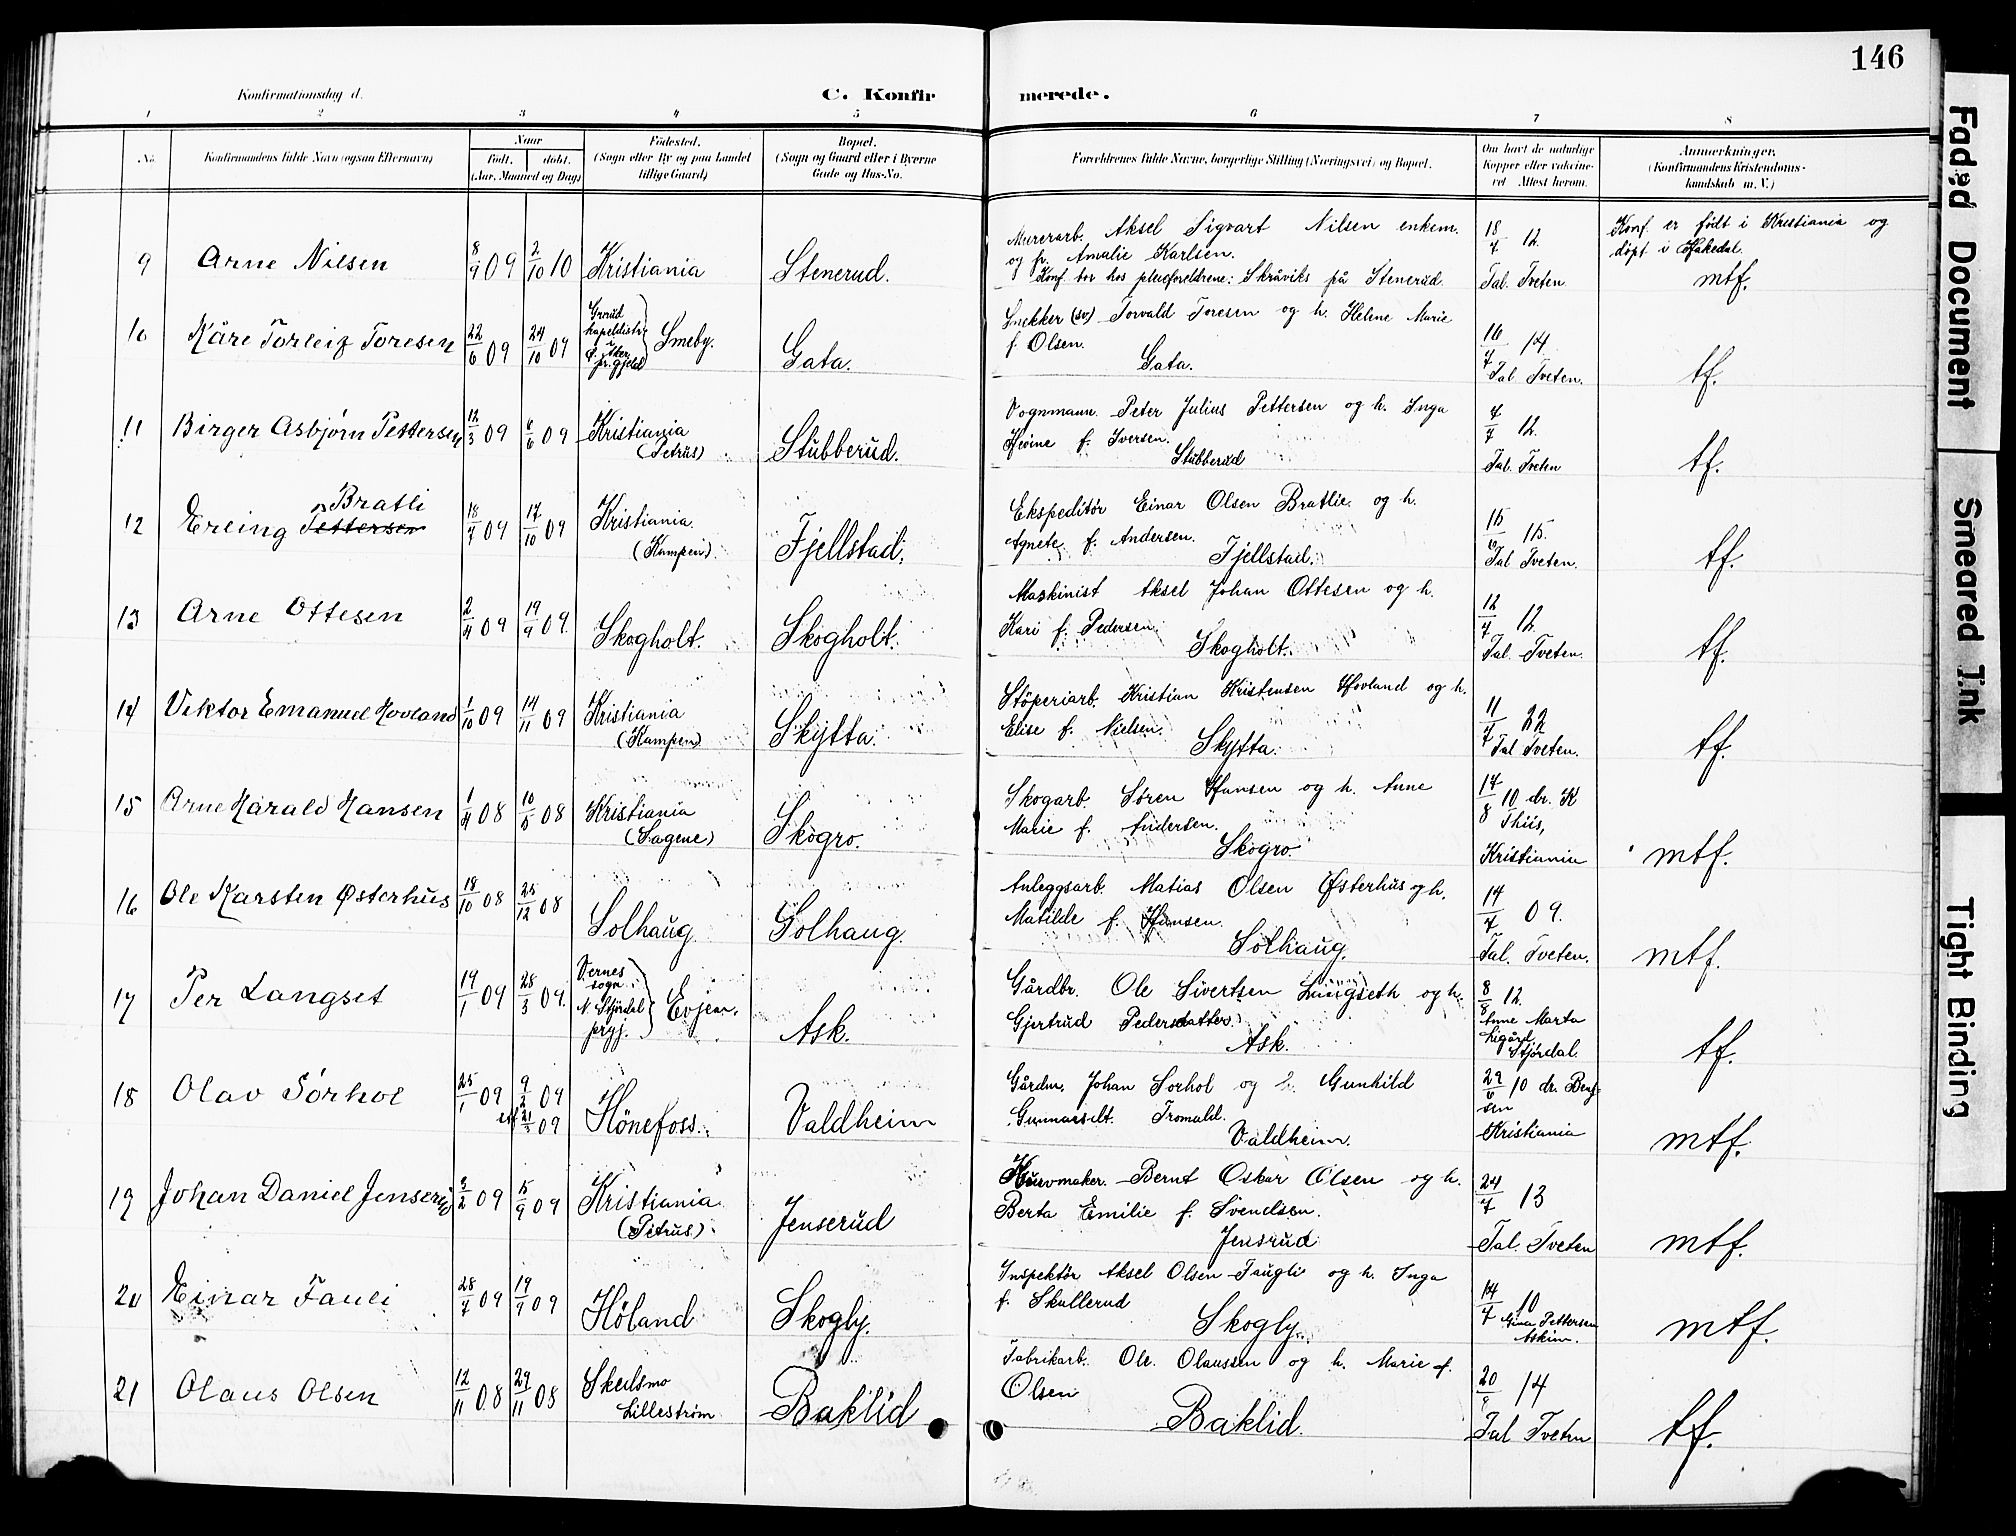 146
Konfirmationsdag d.
C. Konfir
merede.
1 2 3 4 5 6 7 8
No.
Konfirmandens fulde Navn (ogsaa Efternavn)
Naar
født. døbt.
(Aar, Maaned og Dag)
Fødested.
(Sogn eller By og paa Landet
tillige Gaard)
Bopæl.
(Sogn og Gaard eller i Byerne
Gade og Hus-No.
Forældrenes fulde Navne, borgerlige Stilling (Næringsvei) og Bopæl.
Om havt de naturlige
Kopper eller vakcine-
ret Attest herom.
Anmærkninger.
(Konfirmandens Kristendoms-
kundskab m. V.)
9 Arne Nilsen 8/9 09 2/10 10 Kristiania Stenerud.
Murerarb. Aksel Sigvart Nilsen enkem.
og fr. Amalie Karlsen.
Konf. bor hos pleieforeldrene: Skråviks på Stenerud.
18/4 12. Tal. Tveten
Konf. er født i Kristiania og
døpt i Hakedal.
mtf.
10 Kåre Torleif Toresen 22/6 09 24/10 09
Grorud
kapeldistr
i
Ø. Aker
pr.gjeld
Smeby. Gata.
Snekker (sv) Torvald Toresen og h. Helene Marie
f. Olsen.
Gata.
16/7 14 Tal Tveten.
tf.
11 Birger Asbjørn Pettersen 12/3 09 6/6 09 Kristiania
(Petrus)
Stubberud.
Vognmann. Peter Julius Pettersen og h. Inga
f. Iversen.
Stubberud
4/7 12. Tal. Tveten
tf.
Bratli
12 Erling Pettersen 18/7 09 17/10 09 Kristiania.
(Kampen).
Fjellstad.
Ekspeditør Einar Olsen Bratlie. og h.
Agnete f. Andersen.
Fjellstad.
15/6 15. Tal Tveten.
tf.
13 Arne Ottesen 2/4 09 19/9 09. Skogholt. Skogholt.
Maskinist Aksel Johan Ottesen og h.
Kari f. Pedersen.
Skogholt.
12/7 12. Tal. Tveten.
tf.
14 Viktor Emanuel Hovland 1/10 09 14/11 09 Kristiania
(Kampen)
Skytta.
Støperiarb. Kristian Kristensen Hovland og h.
Elise f. Nielsen.
Skytta.
11/7 22 Tal Tveten.
tf.
15 Arne Harald Hansen 1/4 08 10/5 08 Kristiania
(Sagene)
Skogro.
Skogarb. Søren Hansen og h. Anne
Marie f. Andersen.
Skogro.
14/8 10 dr. K
Thiis,
Kristiania
mtf.
16 Ole Karsten Østerhus 18/10 08 25/12 08 Solhaug Solhaug.
Anleggsarb. Matias Olsen Østerhus og h.
Matilde f. Hansen.
Solhaug.
14/7 09. Tal. Tveten.
mtf.
17 Per Langset 19/1 09 28/3 09.
Vernes
sogn
N. Stjørdal
prgj.
Evjen. Ask.
Gårdbr. Ole Sivertsen Langseth og h.
Gjertrud Pedersdatter.
Ask.
8/8 12.
Anne Marta
Ligård,
Stjørdal.
tf.
18 Olav Sørhol 25/1 09 9/2 09
21/3 09
Hønefoss. Valdheim
Gårdm. Johan Sorhol og Gunhild
Gunnarsdt. Tromald.
Valdheim.
29/6 10 dr. Berg
sen
Kristiania
mtf.
19 Johan Daniel Jenserud 3/2 09 5/9 09 Kristiania.
(Petrus).
Jenserud
Kurvmaker. Bernt Oskar Olsen og h.
Berta Emilie f. Svendsen.
Jensrud
24/7 13 Tal. Tveten
mtf.
20 Einar Fauli 28/7 09 19/9 09 Høland Skogly.
Inspektør Aksel Olsen Faugli og h. Inga
f. Skullerud
Skogly.
14/7 10
Gina Pettersen
Askim.
mtf.
21 Olaus Olsen 12/11 08 29/11 08 Skedsmo
Lillestrøm
Baklid
Fabrikarb. Ole. Olaussen og h. Marie f.
Olsen
Baklid.
20/8 14 Tal Tveten
tf.
Faded Document
Smeared Ink
Tight Binding